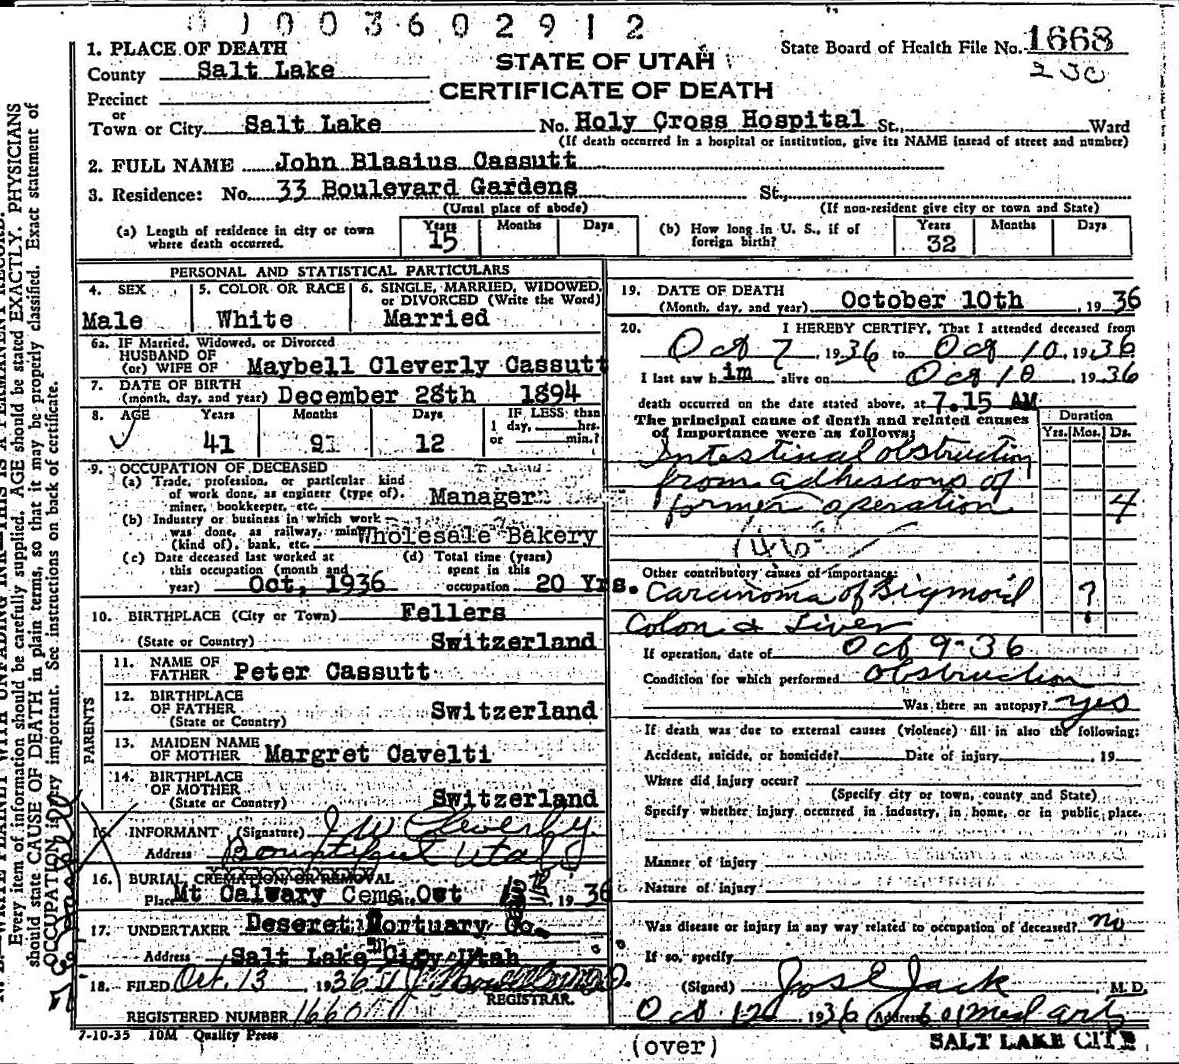 01003602912
1. PLACE OF DEATH
County Salt Lake
Precinct
or
Town or City Salt Lake
STATE OF UTAH
CERTIFICATE OF DEATH
State Board of Health File No. 1668
No. Holy Cross Hospital St., Ward
(If death occurred in a hospital or institution, give its NAME insead of street and number)
2. FULL NAME John Blasius Cassutt
3. Residence: No. 33 Boulevard Gardens St.,
(Usual place of abode) (If non-resident give city or town and State)
(a) Length of residence in city or town where death occurred. Years 15 Months Days
(b) How long in U. S., if of foreign birth? Years 32 Months Days
PERSONAL AND STATISTICAL PARTICULARS
4. SEX Male
5. COLOR OR RACE White
6. SINGLE, MARRIED, WIDOWED, or DIVORCED (Write the Word) Married
6a. IF Married, Widowed, or Divorced
HUSBAND OF
(or) WIFE OF Maybell Cleverly Cassutt
7. DATE OF BIRTH
(month, day, and year) December 28th 1894
8. AGE Years 41 Months 9 Days 12 IF LESS than 1 day, hrs. or min.?
9. OCCUPATION OF DECEASED
(a) Trade, profession, or particular kind of work done, as engineer (type of), miner, bookkeeper, etc. Manager
(b) Industry or business in which work was done, as railway, mine (kind of), bank, etc. Wholesale Bakery
(c) Date deceased last worked at this occupation (month and year) Oct, 1936
(d) Total time (years) spent in this occupation 20 Yrs.
10. BIRTHPLACE (City or Town) Fellers
(State or Country) Switzerland
PARENTS
11. NAME OF FATHER Peter Cassutt
12. BIRTHPLACE OF FATHER
(State or Country) Switzerland
13. MAIDEN NAME OF MOTHER Margret Cavelti
14. BIRTHPLACE OF MOTHER
(State or Country) Switzerland
15. INFORMANT (Signature) J W Cleverly
Address Bountiful Utah
16. BURIAL, CREMATION, OR REMOVAL
Place Mt Calvary Ceme Date Oct 1936
17. UNDERTAKER Deseret Mortuary Co.
Address Salt Lake City Utah
18. FILED Oct. 13 1936
REGISTRAR.
REGISTERED NUMBER 1660
7-10-35 10M Quality Press
19. DATE OF DEATH
(Month, day, and year) October 10th, 1936
20. I HEREBY CERTIFY, That I attended deceased from
Oct 7, 1936 to Oct 10, 1936
I last saw him alive on Oct 10 1936
death occurred on the date stated above, at 7.15 AM
The principal cause of death and related causes of importance were as follows:
Duration
Yrs. Mos. Ds.
Intestinal obstruction
from adhesions of
former operation 4
Other contributory causes of importance:
Carcinoma of Sigmoid ?
Colon & Liver
If operation, date of Oct 9-36
Condition for which performed Obstruction
Was there an autopsy? yes
If death was due to external causes (violence) fill in also the following:
Accident, suicide, or homicide? Date of injury , 19
Where did injury occur?
(Specify city or town, county and State)
Specify whether injury occurred in industry, in home, or in public place.
Manner of injury
Nature of injury
Was disease or injury in any way related to occupation of deceased? no
If so, specify
(Signed) Jos E Jack M. D.
Oct 12 1936 Address Med arts
SALT LAKE CITY
(over)
Every item of information should be carefully supplied. AGE should be stated EXACTLY. PHYSICIANS
should state CAUSE OF DEATH in plain terms, so that it may be properly classified. Exact statement of
OCCUPATION is very important. See instructions on back of certificate.